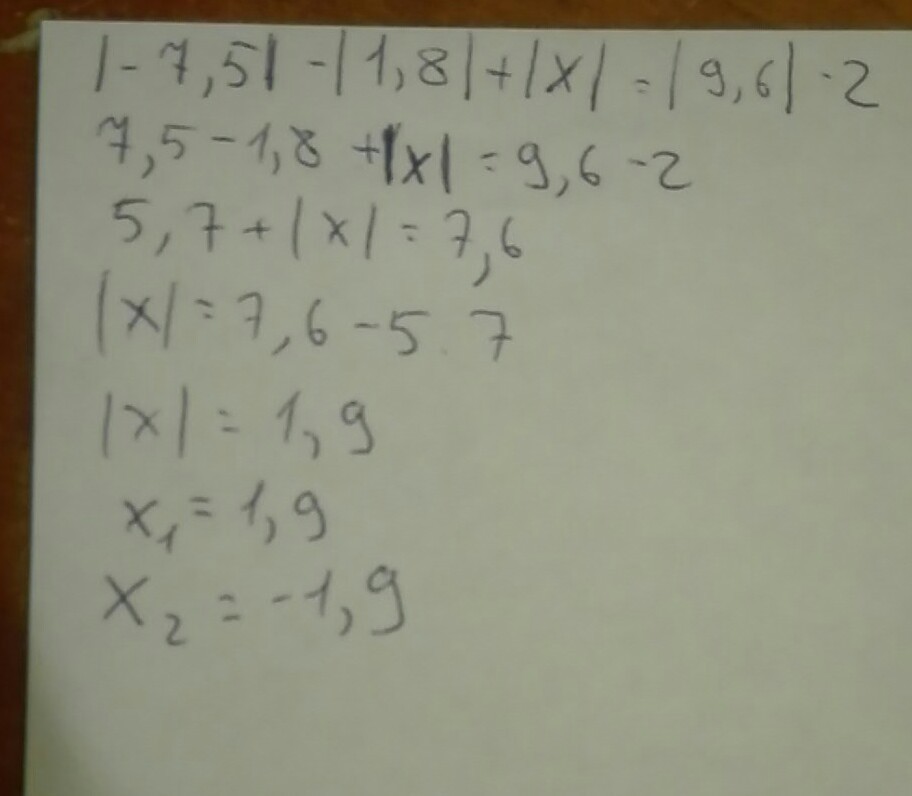 |-7,5| -|1,8|+|x| = |9,6| -2
7,5-1,8 +|x| = 9,6 -2
5,7+|x| = 7,6
|x| = 7,6 -5.7
|x| = 1,9
x₁ = 1,9
x₂ = -1,9